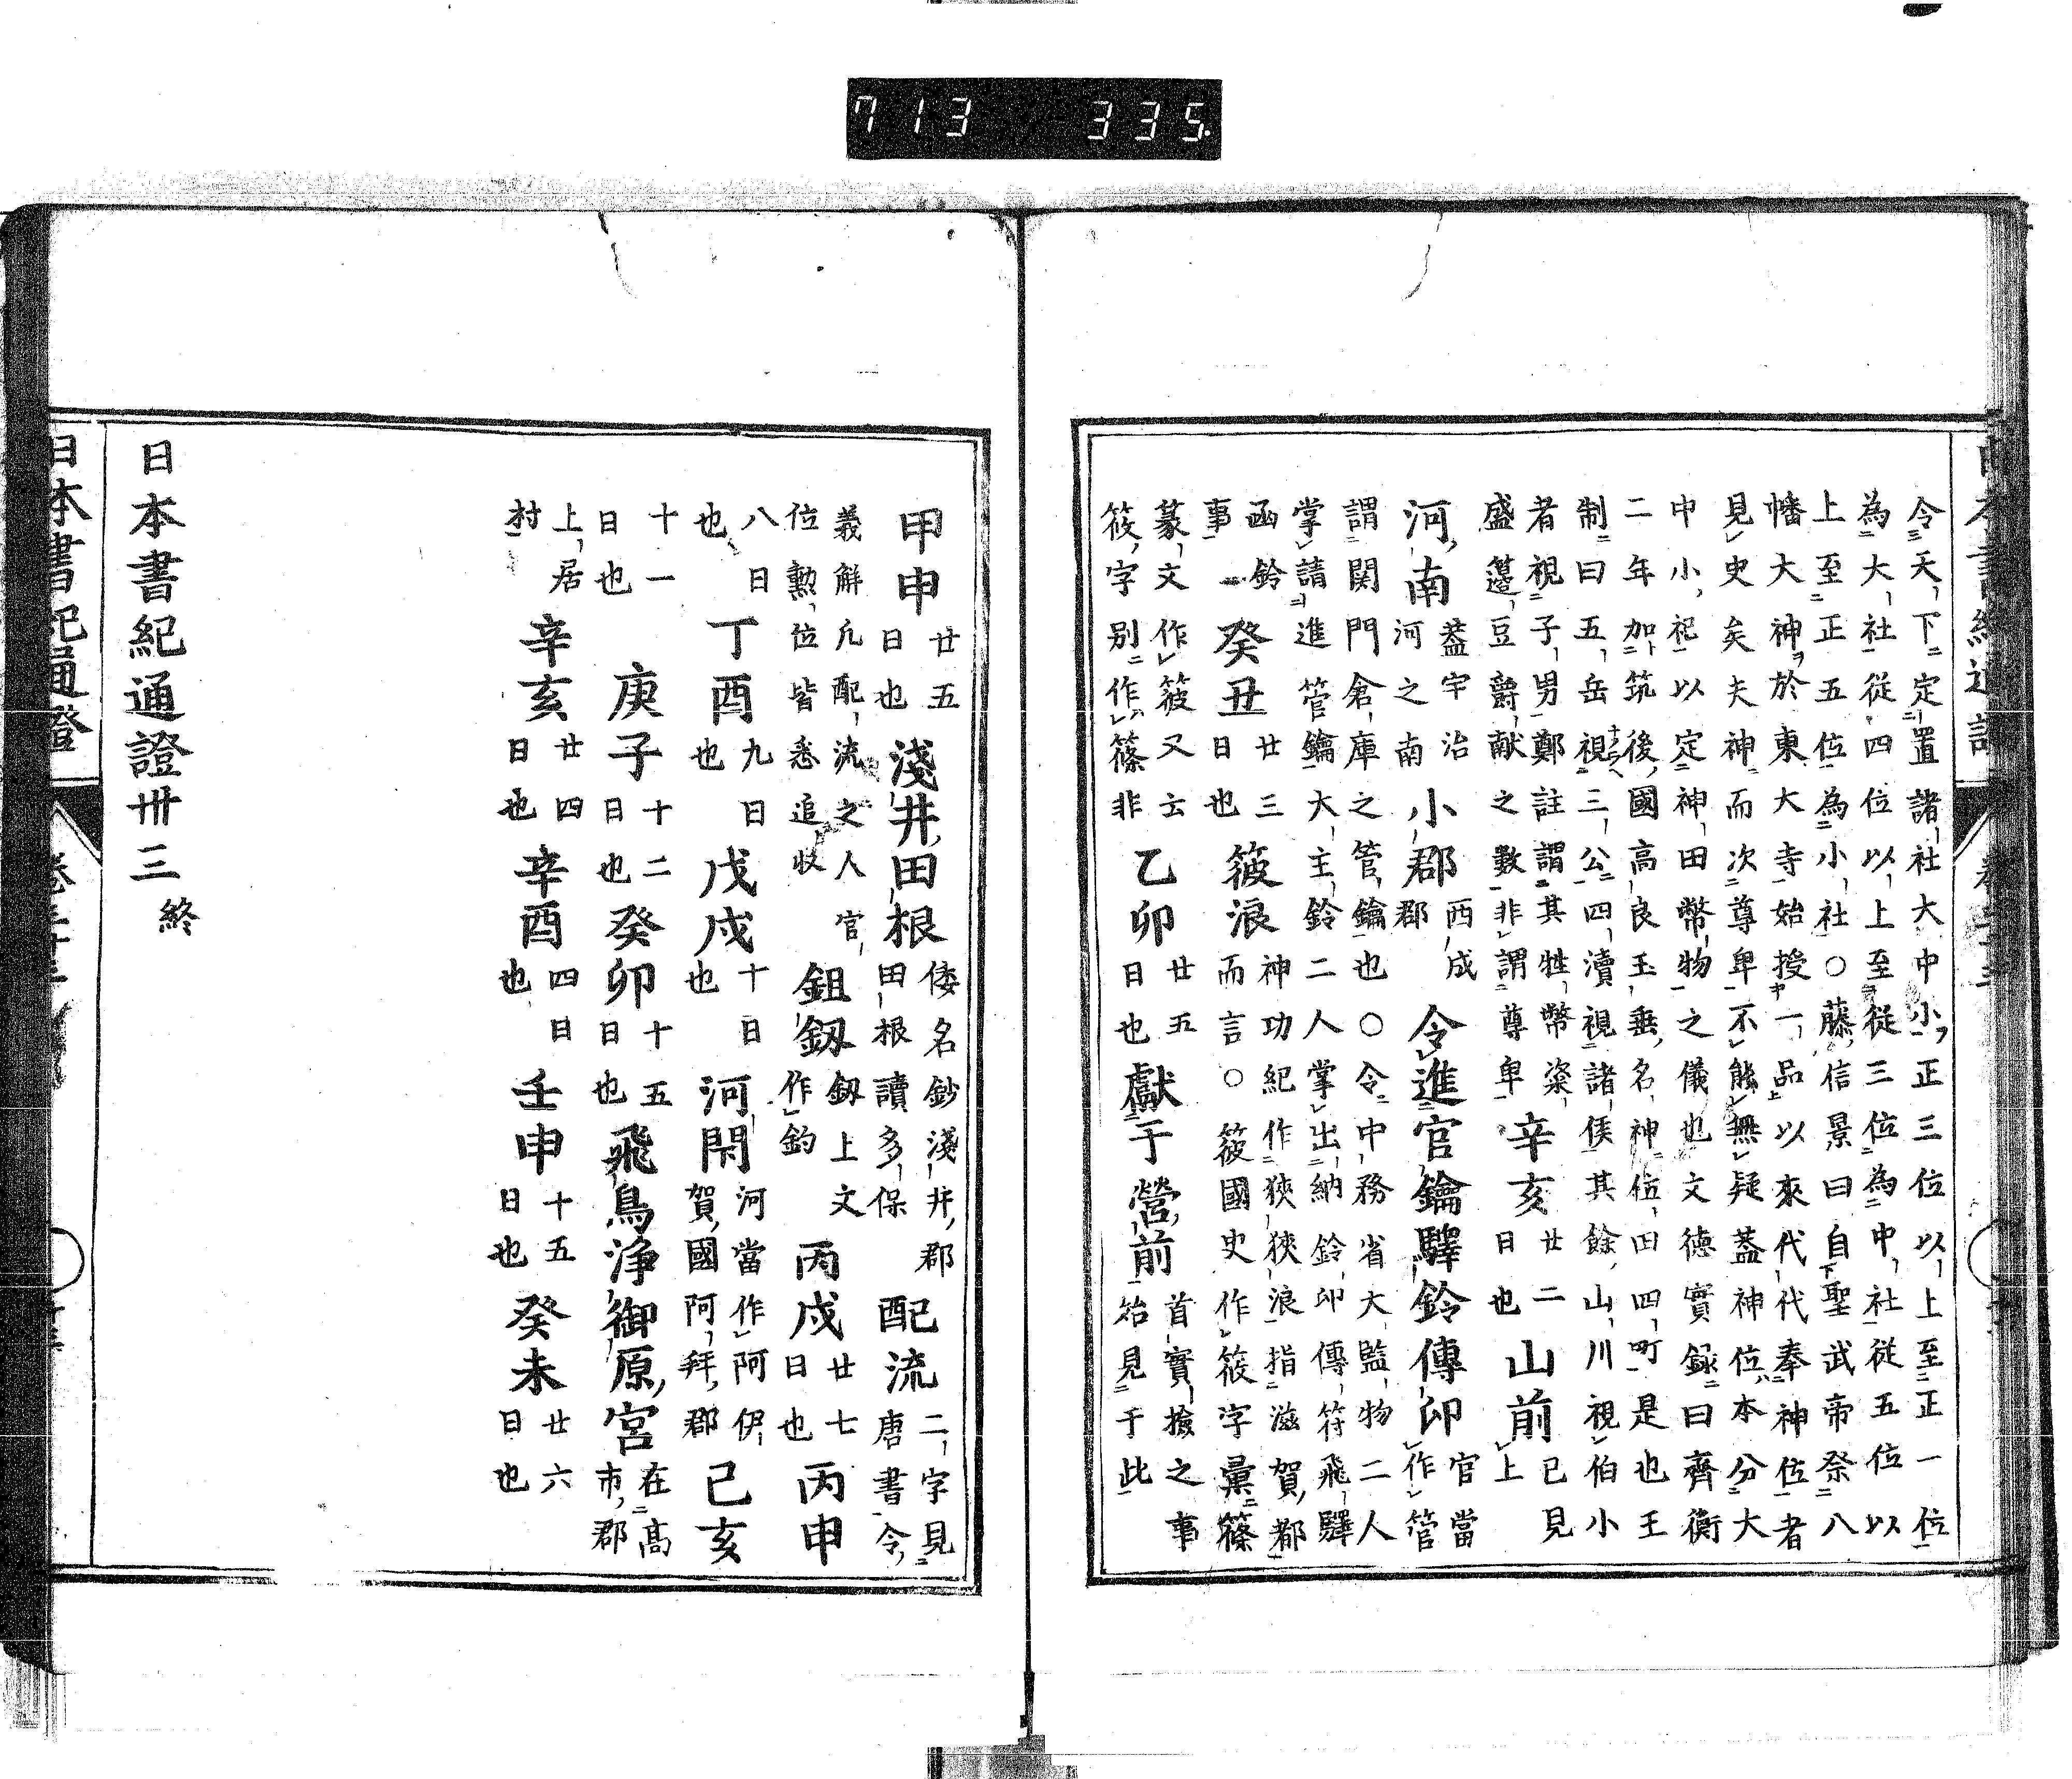 令天下定置諸社大中小正三位以上至正一位
為大社從四位以上至從三位為中社從五位以
上至正五位為小社○藤信景曰自聖武帝祭八
幡大神於東大寺始授一品以來代代奉神位者
見史矣夫神而次尊卑不能無疑蓋神位本分大
中小祀以定神田幣物之儀也文德實録曰齊衡
二年加筑後國高良玉垂名神位田四町是也王
制曰五岳視三公四瀆視諸侯其餘山川視伯小
者視子男鄭註謂其牲幣粢盛籩豆爵献之數非謂尊卑 辛亥 廿二日也 山前 已見上
河南 蓋宇治河之南 小郡 西成郡 令進官鑰驛鈴傳印 官當作管
謂関門倉庫之管鑰也○令中務省大監物二人
掌請進管鑰大主鈴二人掌出納鈴印傳符飛驛
函鈴事 癸丑 廿三日也 筱浪 神功紀作狹狹浪指滋賀都而言○筱國史作筱字彙篠
篆文作筱又云筱字別作篠非 乙卯 廿五日也 獻于營前 首實撿之事始見于此
甲申 廿五日也 淺井田根 倭名鈔淺井郡田根讀多保 配流 二字見唐書令
義解凡配流之人官位勲位皆悉追收 鉏釼 釼上文作釣 丙戌 廿七日也 丙申
八日也 丁酉 九日也 戊戌 十日也 河閇 河當作阿伊賀國阿拜郡 己亥
十一日也 庚子 十二日也 癸卯 十五日也 飛鳥浄御原宮 在高市郡
上居村 辛亥 廿四日也 辛酉 四日也 壬申 十五日也 癸未 廿六日也
日本書紀通證卅三 終
日本書紀通證
713 335